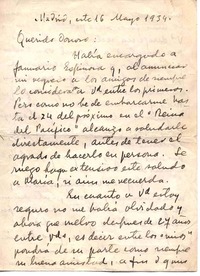 Madrid, este 16 Mayo 1934.
Querido Donoso:
Había encargado a
Januario Espinosa y, al anunciar
mi regreso a los amigos de siempre
lo considerara Vd entre los primeros.
Pero como no he de embarcarme hasta
el 24 del próximo en el "Reina
del Pacífico" alcanzo a saludarle
directamente, antes de tener el
agrado de hacerlo en persona. Le
ruego haga extensivo este saludo
a María, si aun me recuerda.
En cuanto a Vd estoy
seguro no me había olvidado y
ahora que vuelvo después de 27 años
entre Vds, es decir entre los "míos"
pondrá de su parte como siempre
su buena amistad, a fin d que